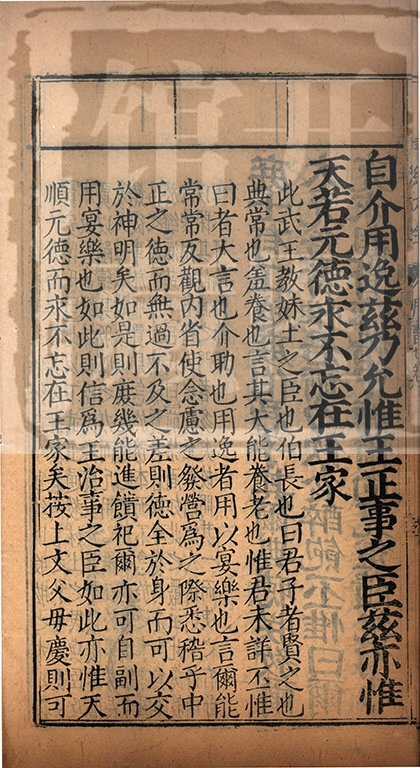 自介用逸茲乃允惟王正事之臣茲亦惟
天若元德永不忘在王家
此武王教妹土之臣也伯長也曰君子者賢之也
典常也羞養也言其大能養老也惟君未詳丕惟
曰者大言也介助也用逸者用以宴樂也言爾能
常常反觀內省使念慮之發營爲之際悉稽乎中
正之德而無過不及之差則德全於身而可以交
於神明矣如是則庶幾能進饋祀爾亦可自副而
用宴樂也如此則信爲王治事之臣如此亦惟天
順元德而永不忘在王家矣按上文父母慶則可